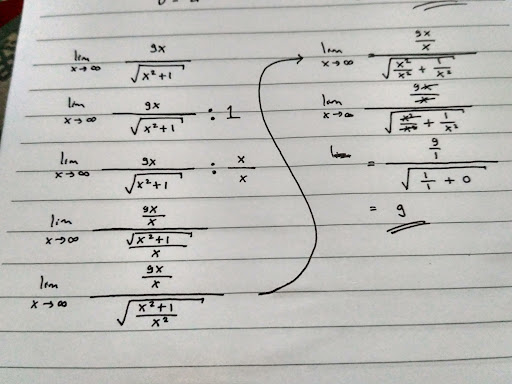 lim x→∞ 9x / √(x²+1)
lim x→∞ 9x / √(x²+1) : 1
lim x→∞ 9x / √(x²+1) : x/x
lim x→∞ (9x/x) / (√(x²+1)/x)
lim x→∞ (9x/x) / √((x²+1)/x²)
lim x→∞ = (9x/x) / √(x²/x² + 1/x²)
lim x→∞ (9x/x) / √(x²/x² + 1/x²)
= (9/1) / √(1/1 + 0)
= 9